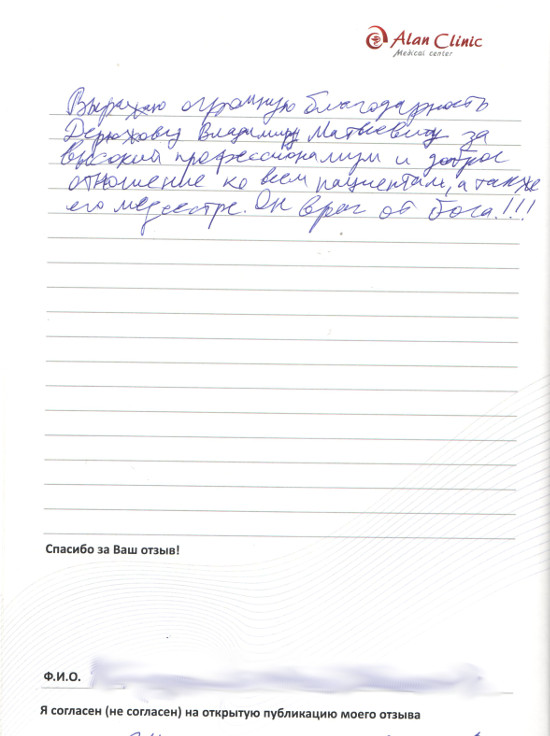 Alan Clinic
Medical center
Выражаю огромную благодарность
Дерюхову Владимиру Матвеевичу за
высокий профессионализм и доброе
отношение ко всем пациентам, а также
его медсестре. Он врач от бога!!!
Спасибо за Ваш отзыв!
Ф.И.О.
Я согласен (не согласен) на открытую публикацию моего отзыва